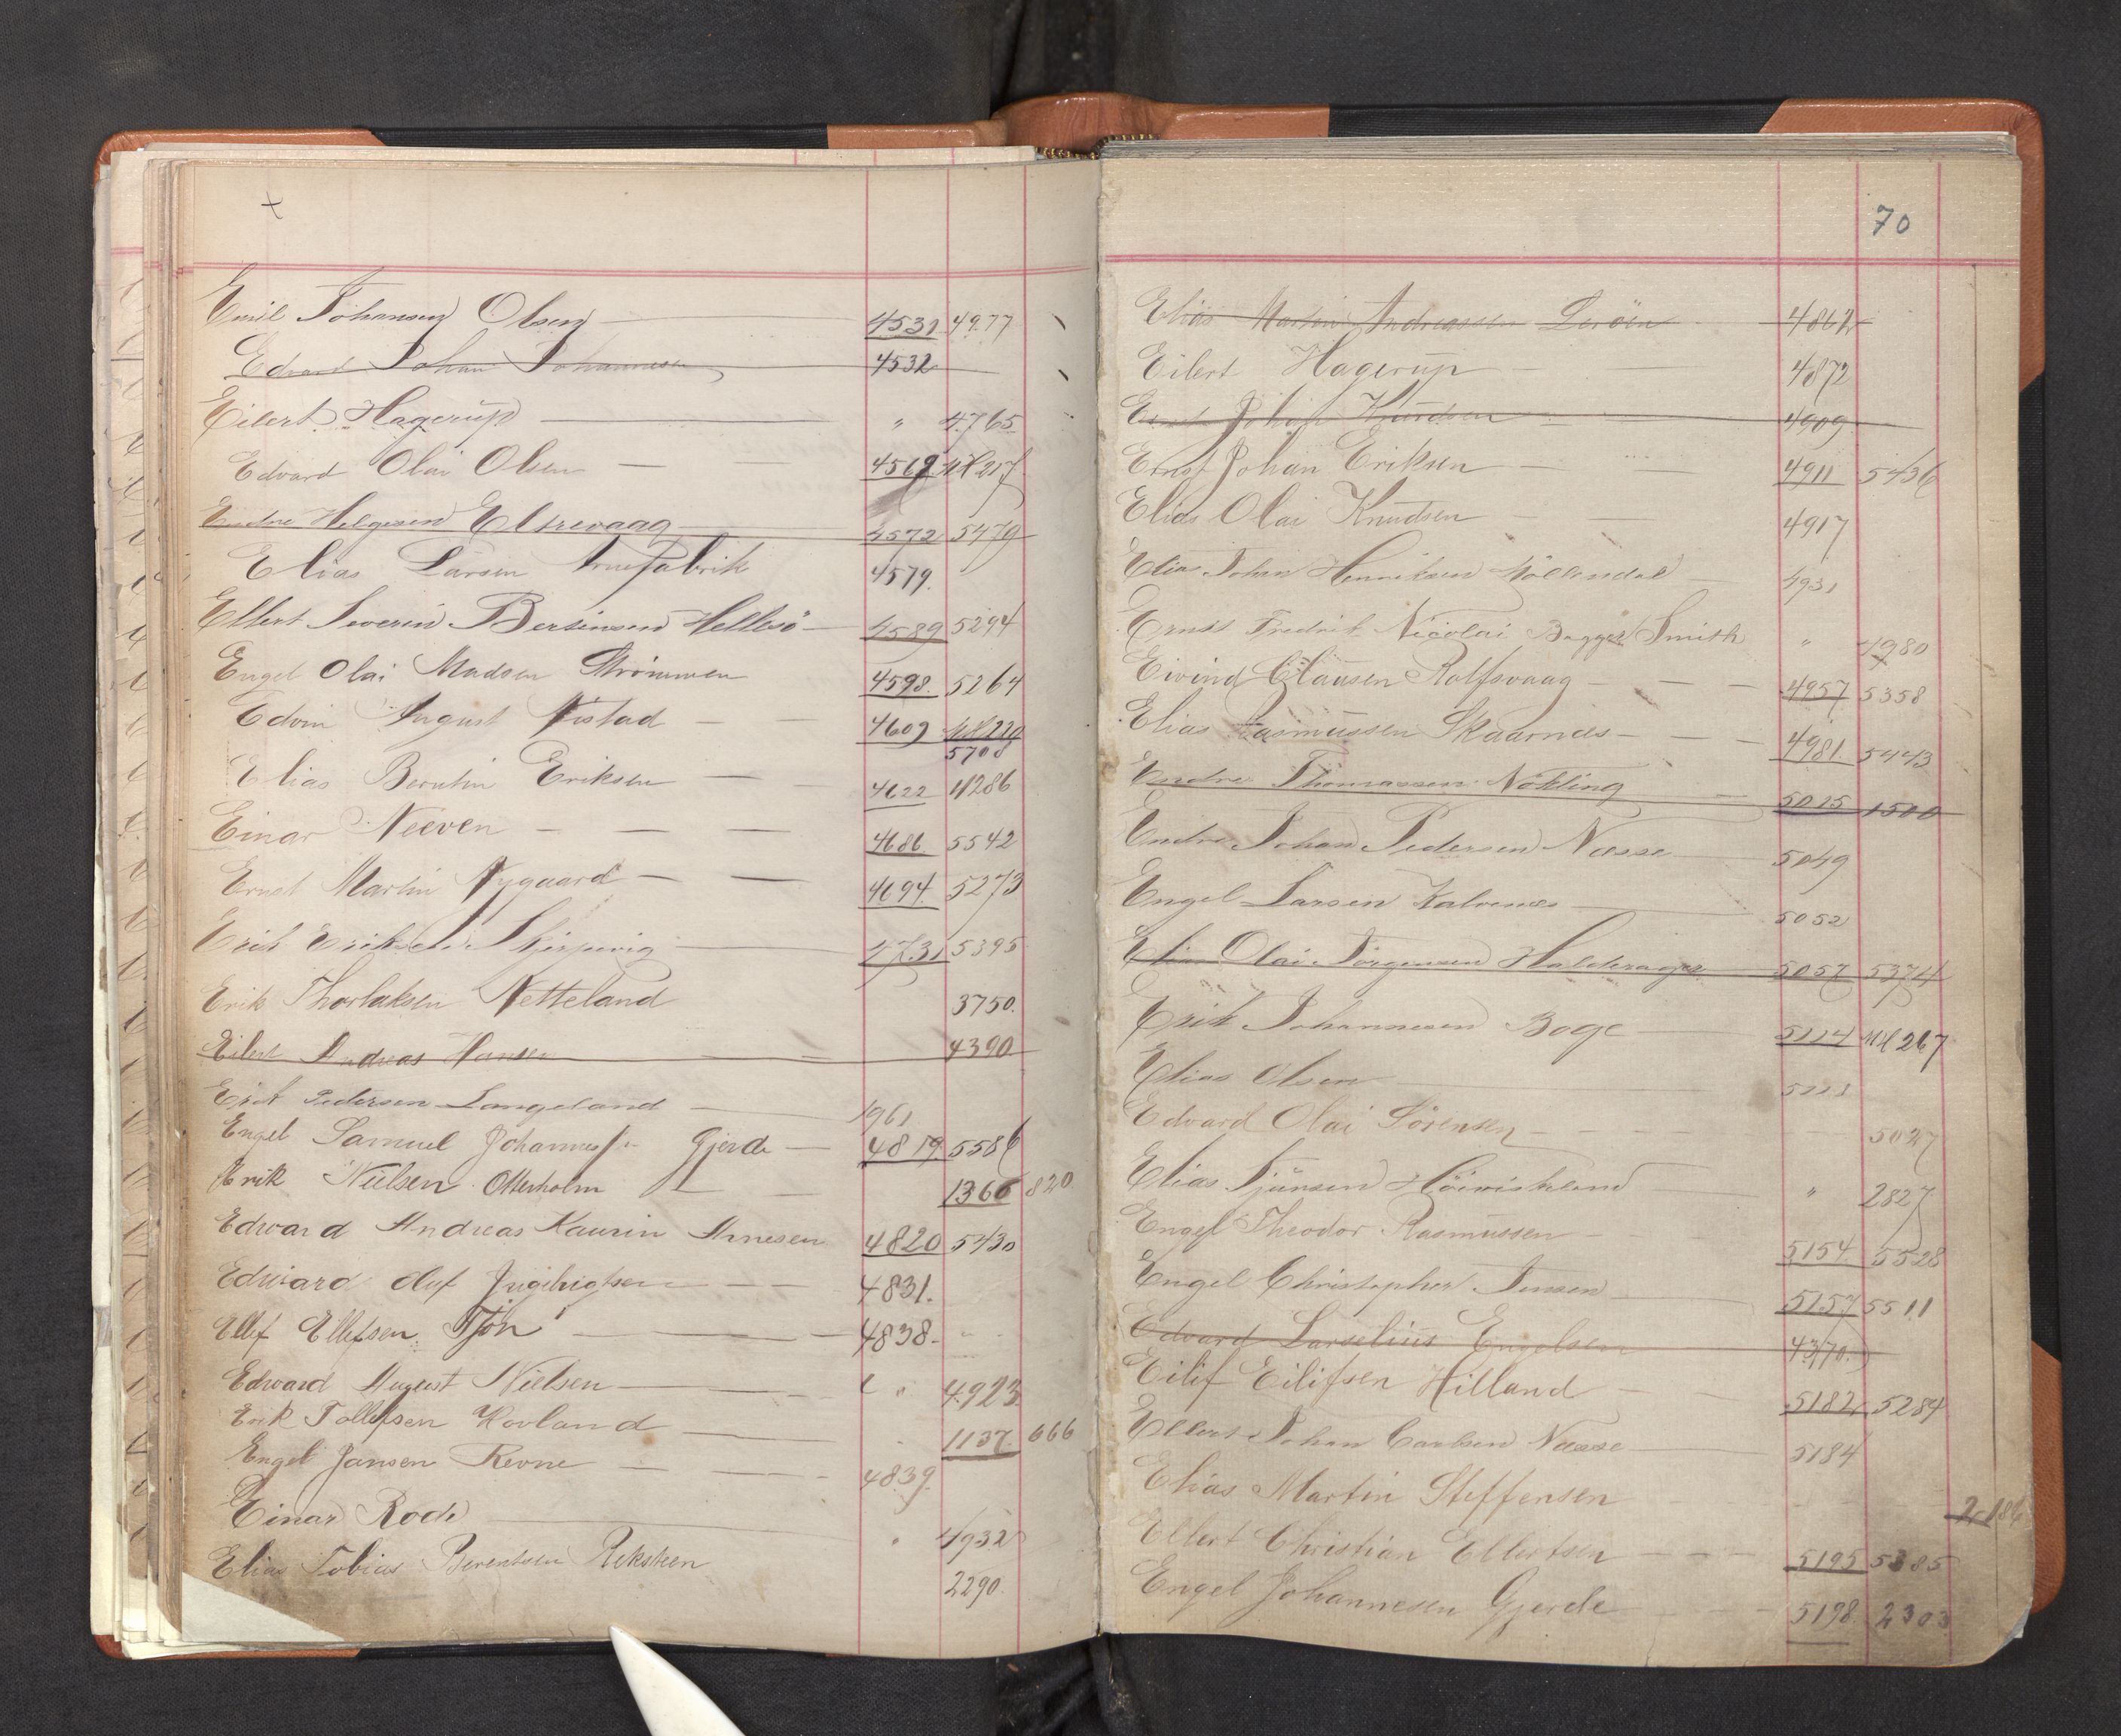 +
Emil Johansen Olsen 4531 4977
Edvard Johan Johannesen 4532
Eilert Hagerup " 4765
Edvard Olai Olsen 4569 217
Endre Helgesen Eltrevaag 4572 5479
Elias Larsen Arnefabrik 4579.
Ellert Severin Bersinsen Hellesö 4589 5294
Engel Olai Madsen Strømmen 4598. 5264
Edvin August Nistad 4609
5708
Elias Eriksen 4622 286
Einar Neeven 4686. 5542
Ernst Martin Nygaard 4694. 5273
Erik Eriksen 4731 5395
Erik Thorlaksen Netteland 3750.
Eilert Andreas Hansen 4390
Erik Pedersen Langeland 1961
Engel Samuel Johannessen Gjerde 4819. 5586
Erik Nielsen Otterholm 1366 820
Edward Andreas Kaurin Arnesen 4820 5430
Edward Oluf 4831.
Ellef Ellefsen Tjön 4838.
Edward August Nielsen " 4923.
Erik Tollefsen Hovland 1137. 666
Engel Jansen Revne 4839.
Einar Rode " 4932
Elias Tobias Berentsen Reksteen 2290.
70
Elias Martin Andreassen Leröen 4862
Eilert Hagerup 4872
Ernst Johan Knudsen 4909
Ernst Johan Eriksen 4911 5436
Elias Olai Knudsen 4917
Elias Johan Henriksen Möllendal 4931
Ernst Fredrik Nicolai Bagger Smith " 4980
Eivind Clausen Rolfsvaag 4957 5358
Elias Rasmussen Skaarnæs 4981 5443
Endre Thomassen Nökling 5025 1500
Endre Johan Pedersen Næsse 5049
Engel Larsen Kalvenæs 5052
Olai Jörgensen 5057 5374
Erik Johannesen Boge 5114 267
Elias Olsen
Edvard Olai Sörensen
Elias " 2827
Engel Theodor Rasmussen 5154. 5528
Engel Christopher Jensen 5157 5511
Edvard Larselius Engelsen 4370.
Eilif Eilifsen Hilland 5182 5284
Ellert Johan Carlsen Næsse 5184
Elias Martin Steffensen
Ellert Christian Ellertsen 5195 5385
Engel Johannesen Gjerde 5198. 2303